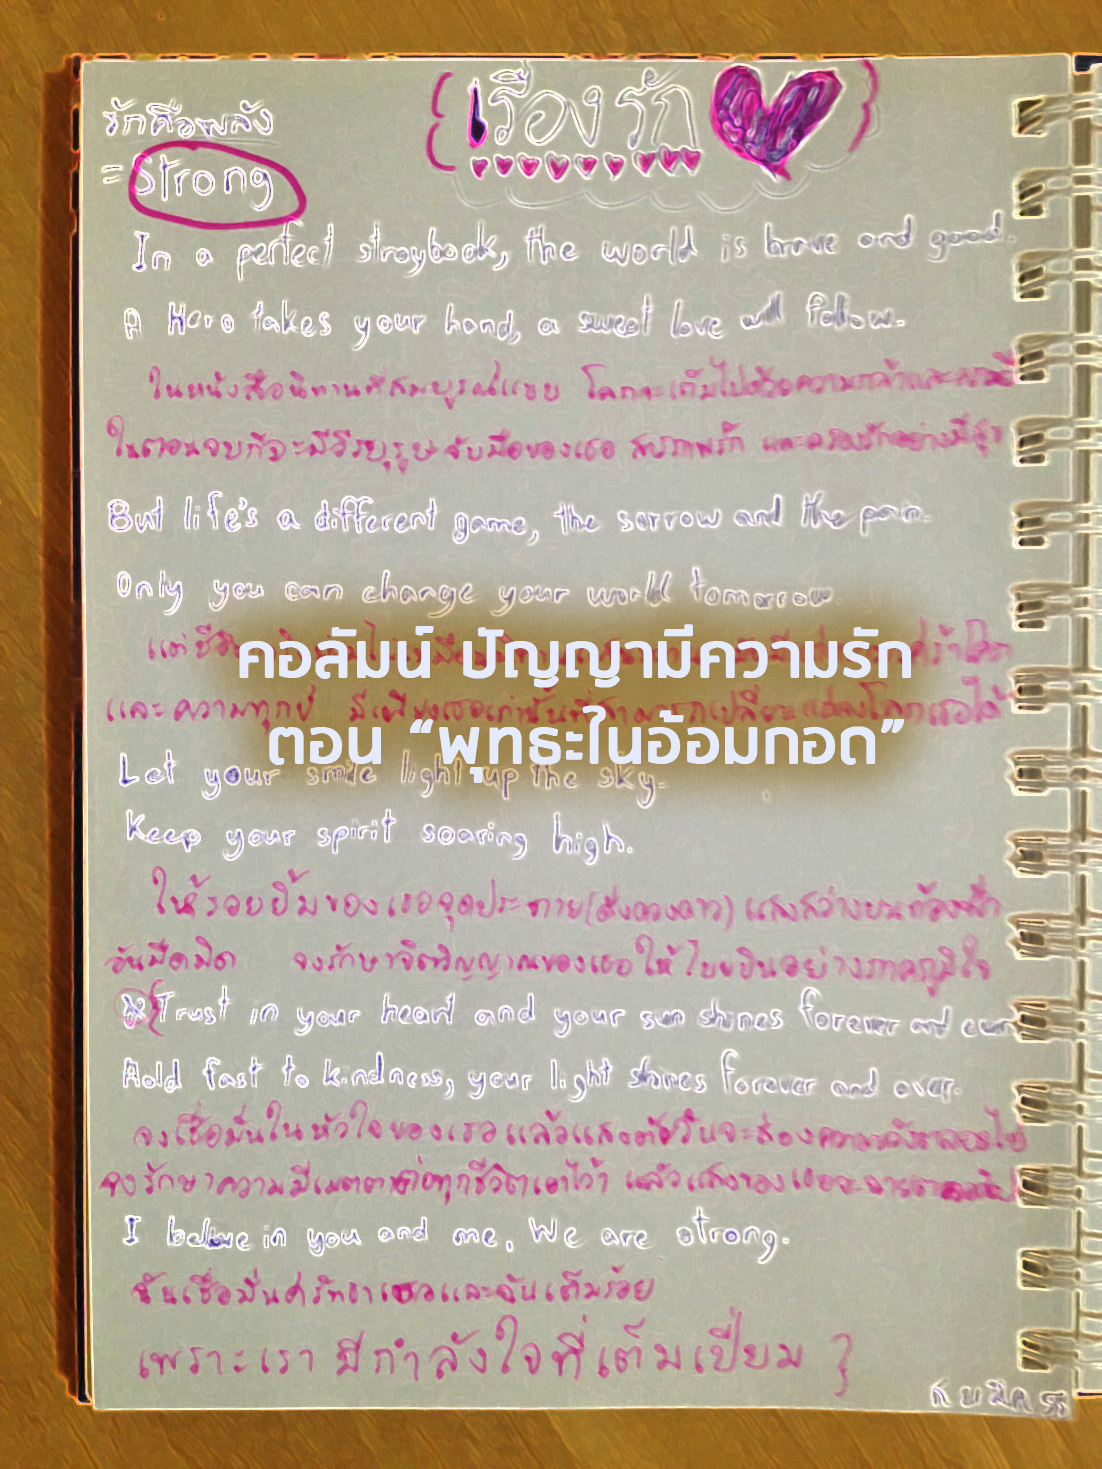 {เรื่องรัก}
รักคือพลัง
= Strong
In a perfect stroybook, the world is brave and good.
A Hero takes your hand, a sweet love will follow.
ในหนังสือนิทานที่สมบูรณ์แบบ โลกจะเต็มไปด้วยความกล้าและความดี
ในตอนจบก็จะมีวีรบุรุษจับมือของเธอ สบรักพรัก และครองรักอย่างมีสุข
But life's a different game, the sorrow and the pain.
Only you can change your world tomorrow.
คอลัมน์ ปัญญามีความรัก
แต่ชีวิต
และความทุกข์ มีเพียงเธอเท่านั้นที่สามารถเปลี่ยนแปลงโลกเธอได้
ตอน “พุทธะในอ้อมกอด”
Let your smile light up the sky.
Keep your spirit soaring high.
ให้รอยยิ้มของเธอจุดประกาย(ดั่งดวงดาว) แสงสว่างบนท้องฟ้า
อันมืดมิด จงรักษาจิตวิญญาณของเธอให้โบยบินอย่างภาคภูมิใจ
{Trust in your heart and your sun shines forever and ever
Hold fast to kindness, your light shines forever and over.
จงเชื่อมั่นในหัวใจของเธอแล้วแสงตะวันจะส่อง
จงรักษาความมีเมตตาต่อทุกชีวิตเอาไว้ แล้วแสงของเธอจะฉาย
I believe in you and me, We are strong.
ฉันเชื่อมั่นศรัทธาเธอและฉันเต็มร้อย
เพราะเรามีกำลังใจที่เต็มเปี่ยม }